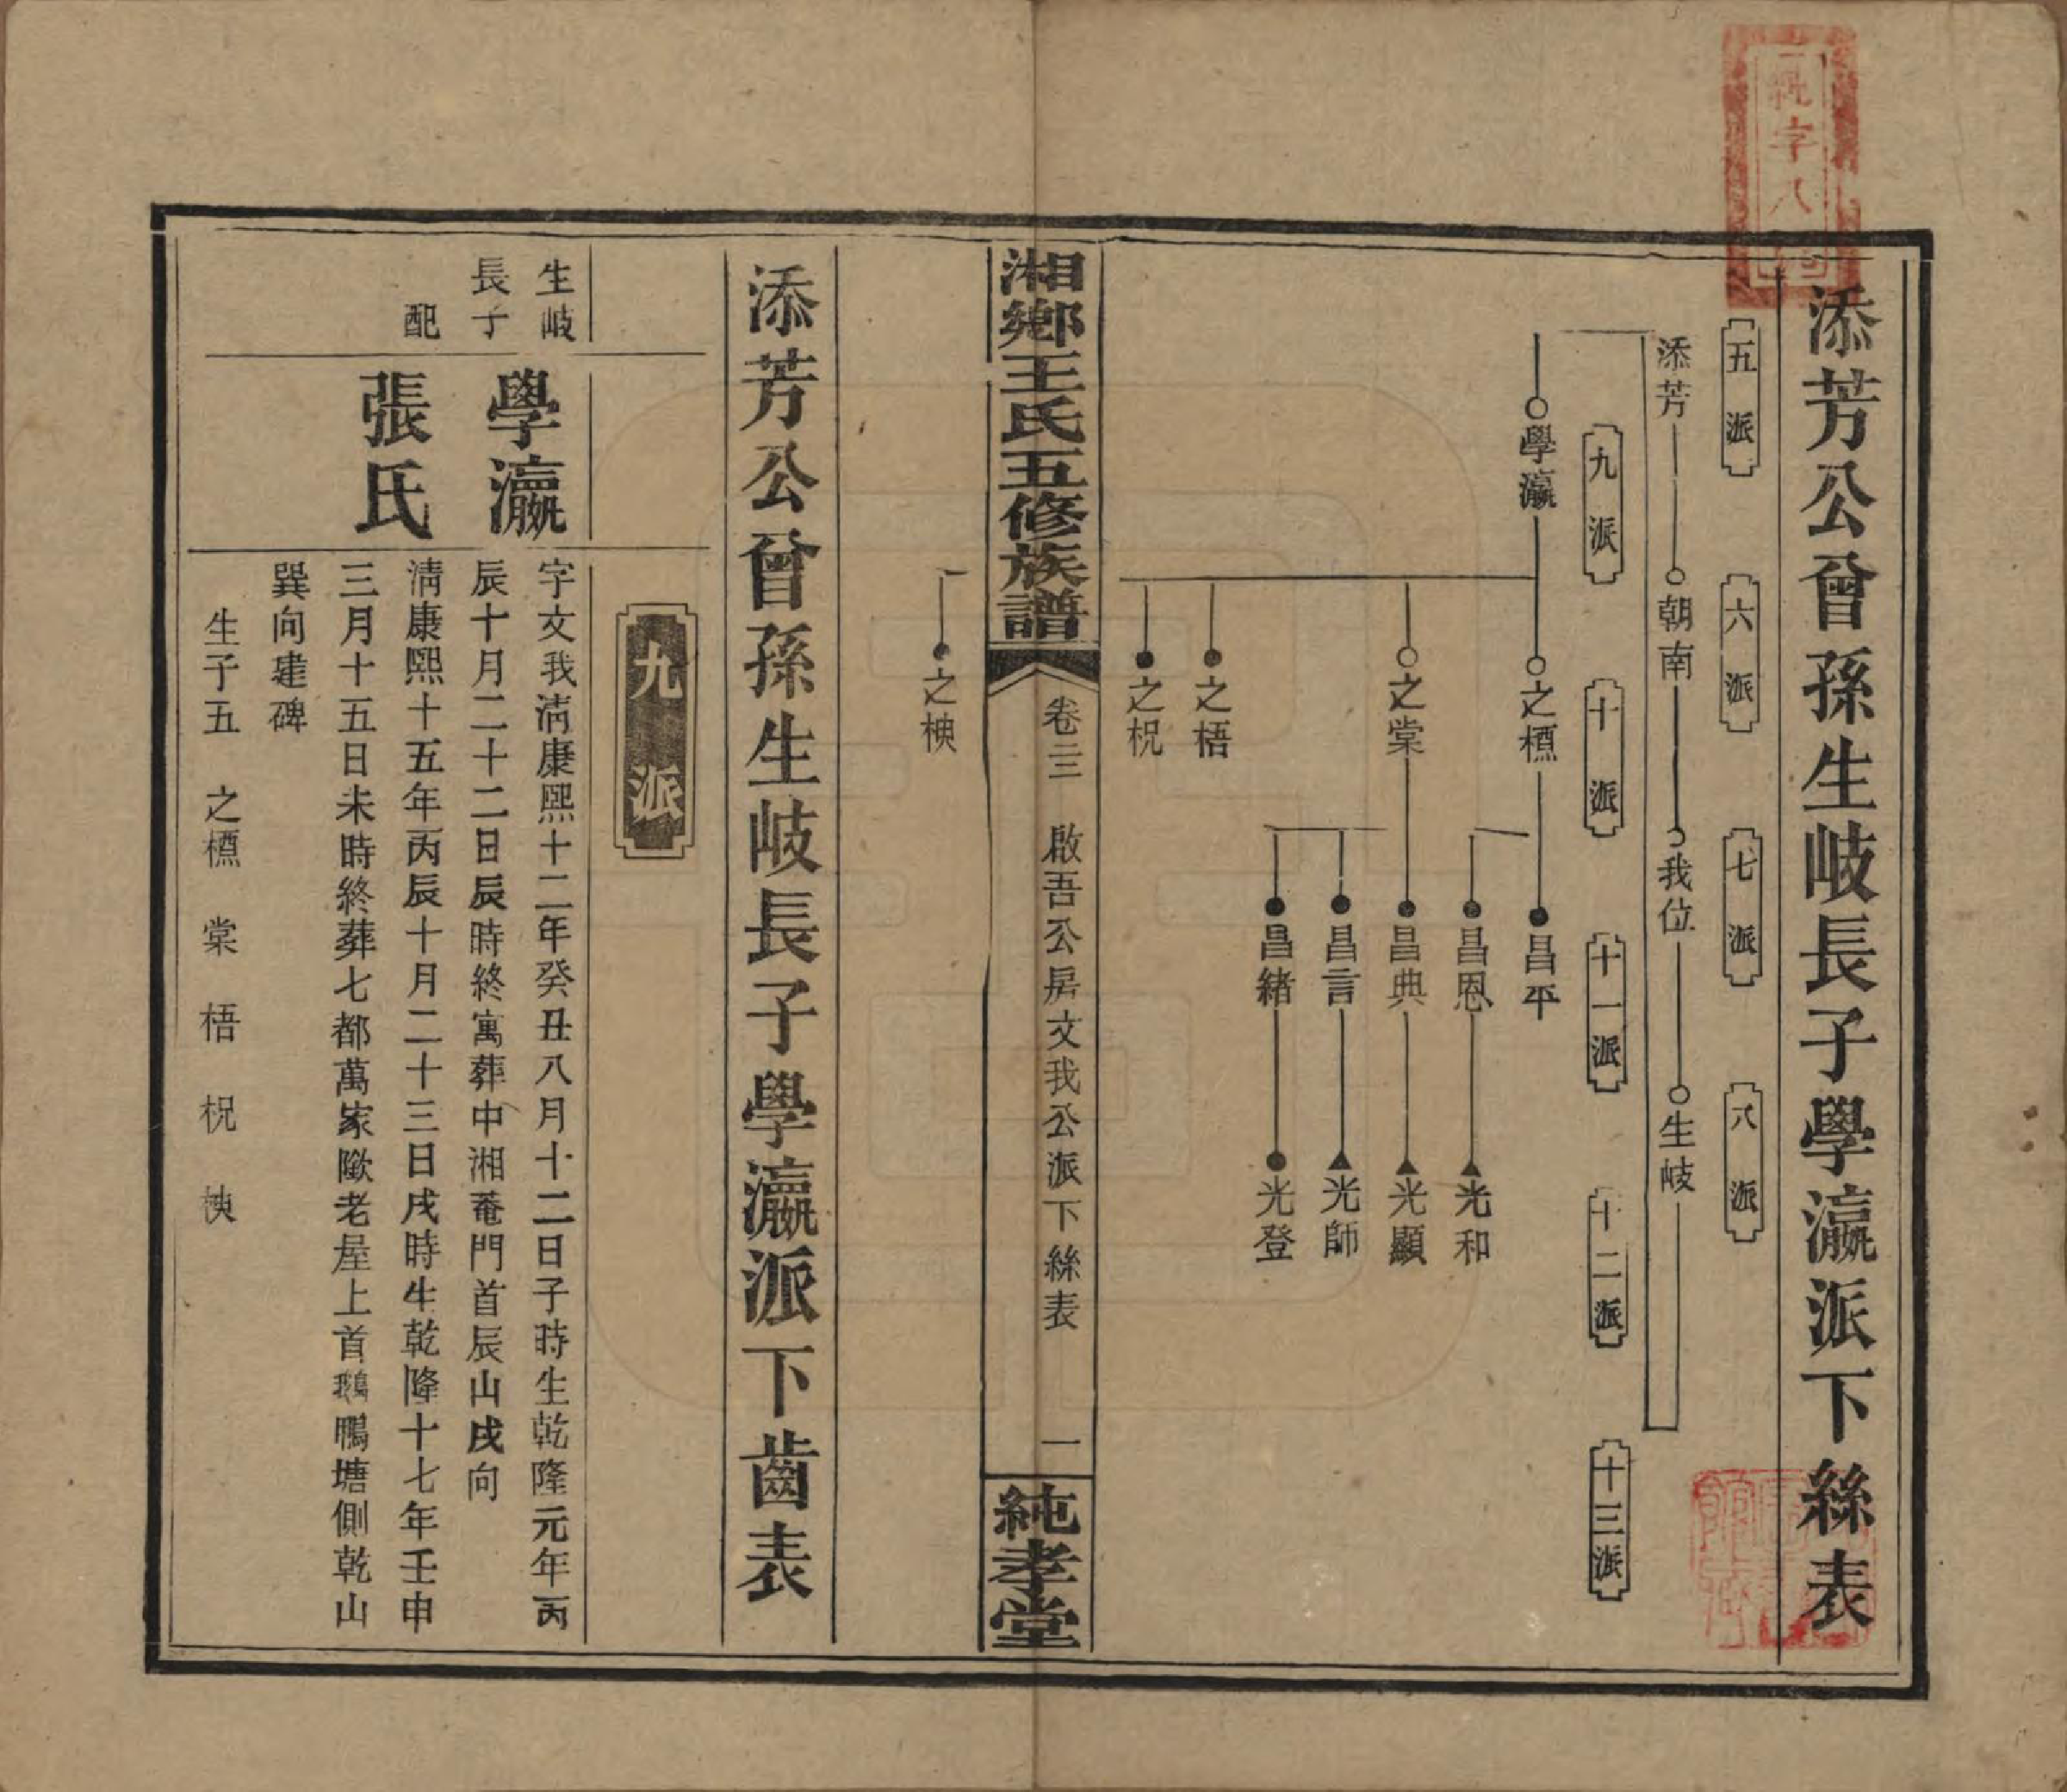 添芳公曾孫生岐長子學瀛派下絲表
五派
六派
七派
八派
添芳
朝南
我位
生岐
九派
十派
十一派
十二派
十三派
學瀛
之標
昌平
昌恩
光和
之棠
昌典
光顯
昌言
光師
昌緒
光登
之梧
之柷
湘鄉王氏五修族譜
卷二三
啟吾公房文我公派下絲表
一
純孝堂
之柍
添芳公曾孫生岐長子學瀛派下齒表
九派
生岐
長子
學瀛
字文我清康熙十二年癸丑八月十二日子時生乾隆元年丙
辰十月二十二日辰時終寓葬中湘菴門首辰山戌向
配
張氏
清康熙十五年丙辰十月二十三日戌時生乾隆十七年壬申
三月十五日未時終葬七都萬家隞老屋上首鵝鴨塘側乾山
巽向建碑
生子五 之標 棠 梧 柷 柍
字八